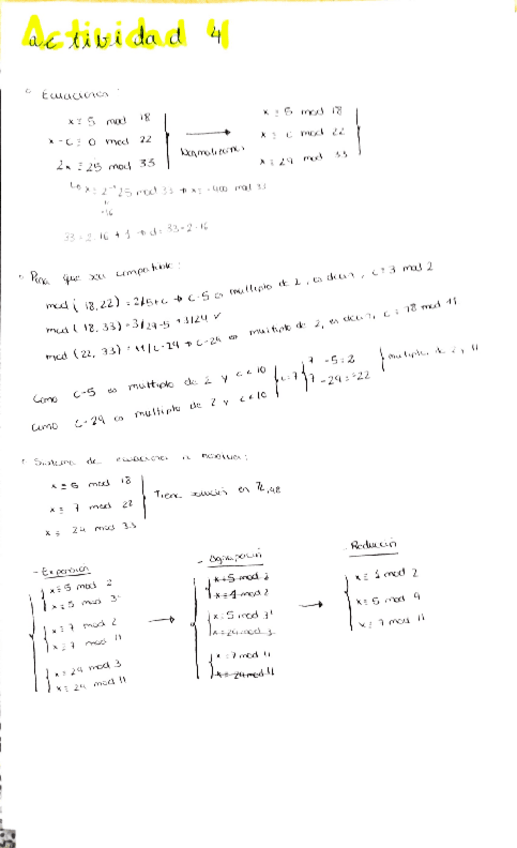 Actividad 4
Ecuaciones:
x ≡ 5 mod 18
x - c ≡ 0 mod 22
2x ≡ 25 mod 33
x ≡ 5 mod 18
x ≡ c mod 22
x ≡ 29 mod 33
33 = 2·16 + 1 → d = 33 - 2·16
Para que sea compatible:
mcd (18,22) = 2/5+c → c-5 es multiplo de 2, es decir, c = 3 mod 2
mcd (18,33) = 3/29-5 → 3/24 ✓
mcd (22,33) = 11/c-29 → c-29 es multiplo de 2, es decir, c = 18 mod 11
Como c-5 es multiplo de 2 y c < 10
Como c-29 es multiplo de 2 y c < 10
c = 7
7 - 5 = 2
7 - 29 = -22
multiplos de 2, 11
Sistema de ecuaciones a resolver:
x ≡ 5 mod 18
x ≡ 7 mod 22
x ≡ 29 mod 33
Tiene solución en
- Expansión
x ≡ 5 mod 2
x ≡ 5 mod 3²
x ≡ 7 mod 2
x ≡ 7 mod 11
x ≡ 29 mod 3
x ≡ 29 mod 11
- Agrupación
x ≡ 5 mod 2
x ≡ 1 mod 2
x ≡ 5 mod 3²
x ≡ 29 mod 3
x ≡ 7 mod 11
x ≡ 29 mod 11
- Reducción
x ≡ 1 mod 2
x ≡ 5 mod 9
x ≡ 7 mod 11